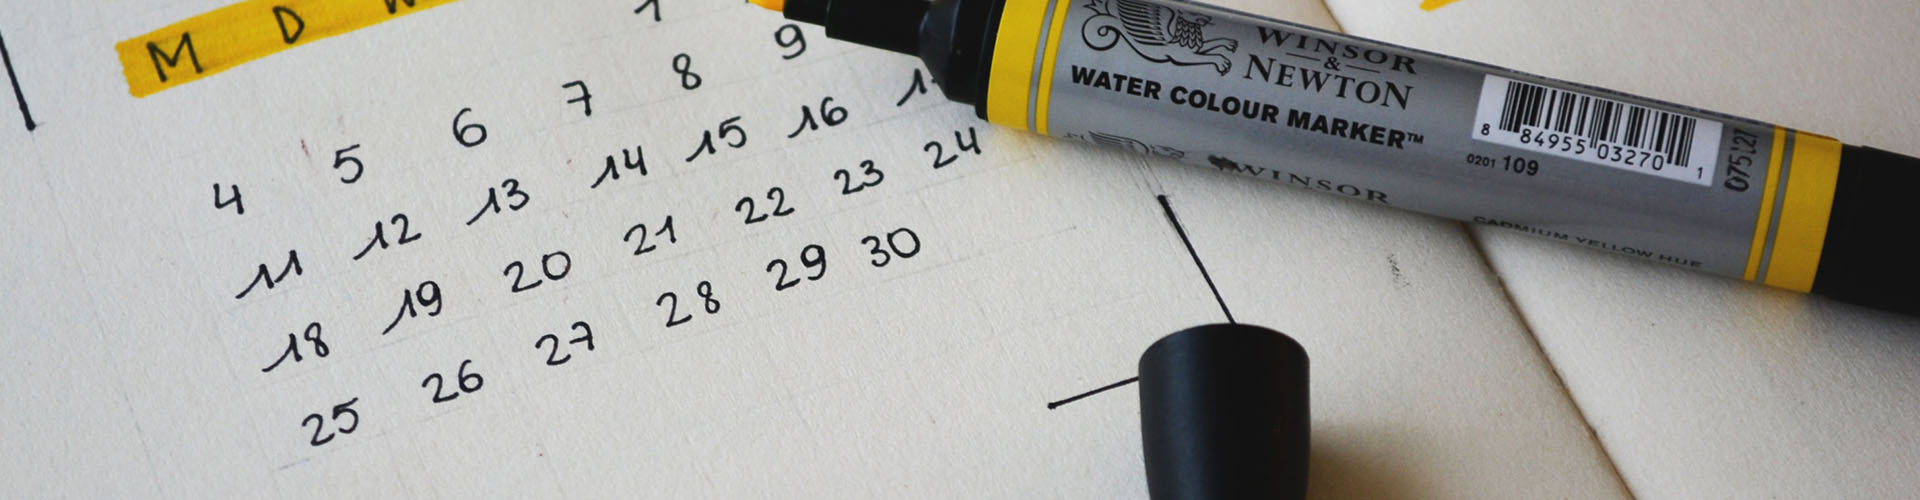 M D W
1
4 5 6 7 8 9
11 12 13 14 15 16
18 19 20 21 22 23 24
25 26 27 28 29 30
WINSOR
&
NEWTON
WATER COLOUR MARKER™
0201 109
8 84955 03270 1
075127
WINSOR
CADMIUM YELLOW HUE